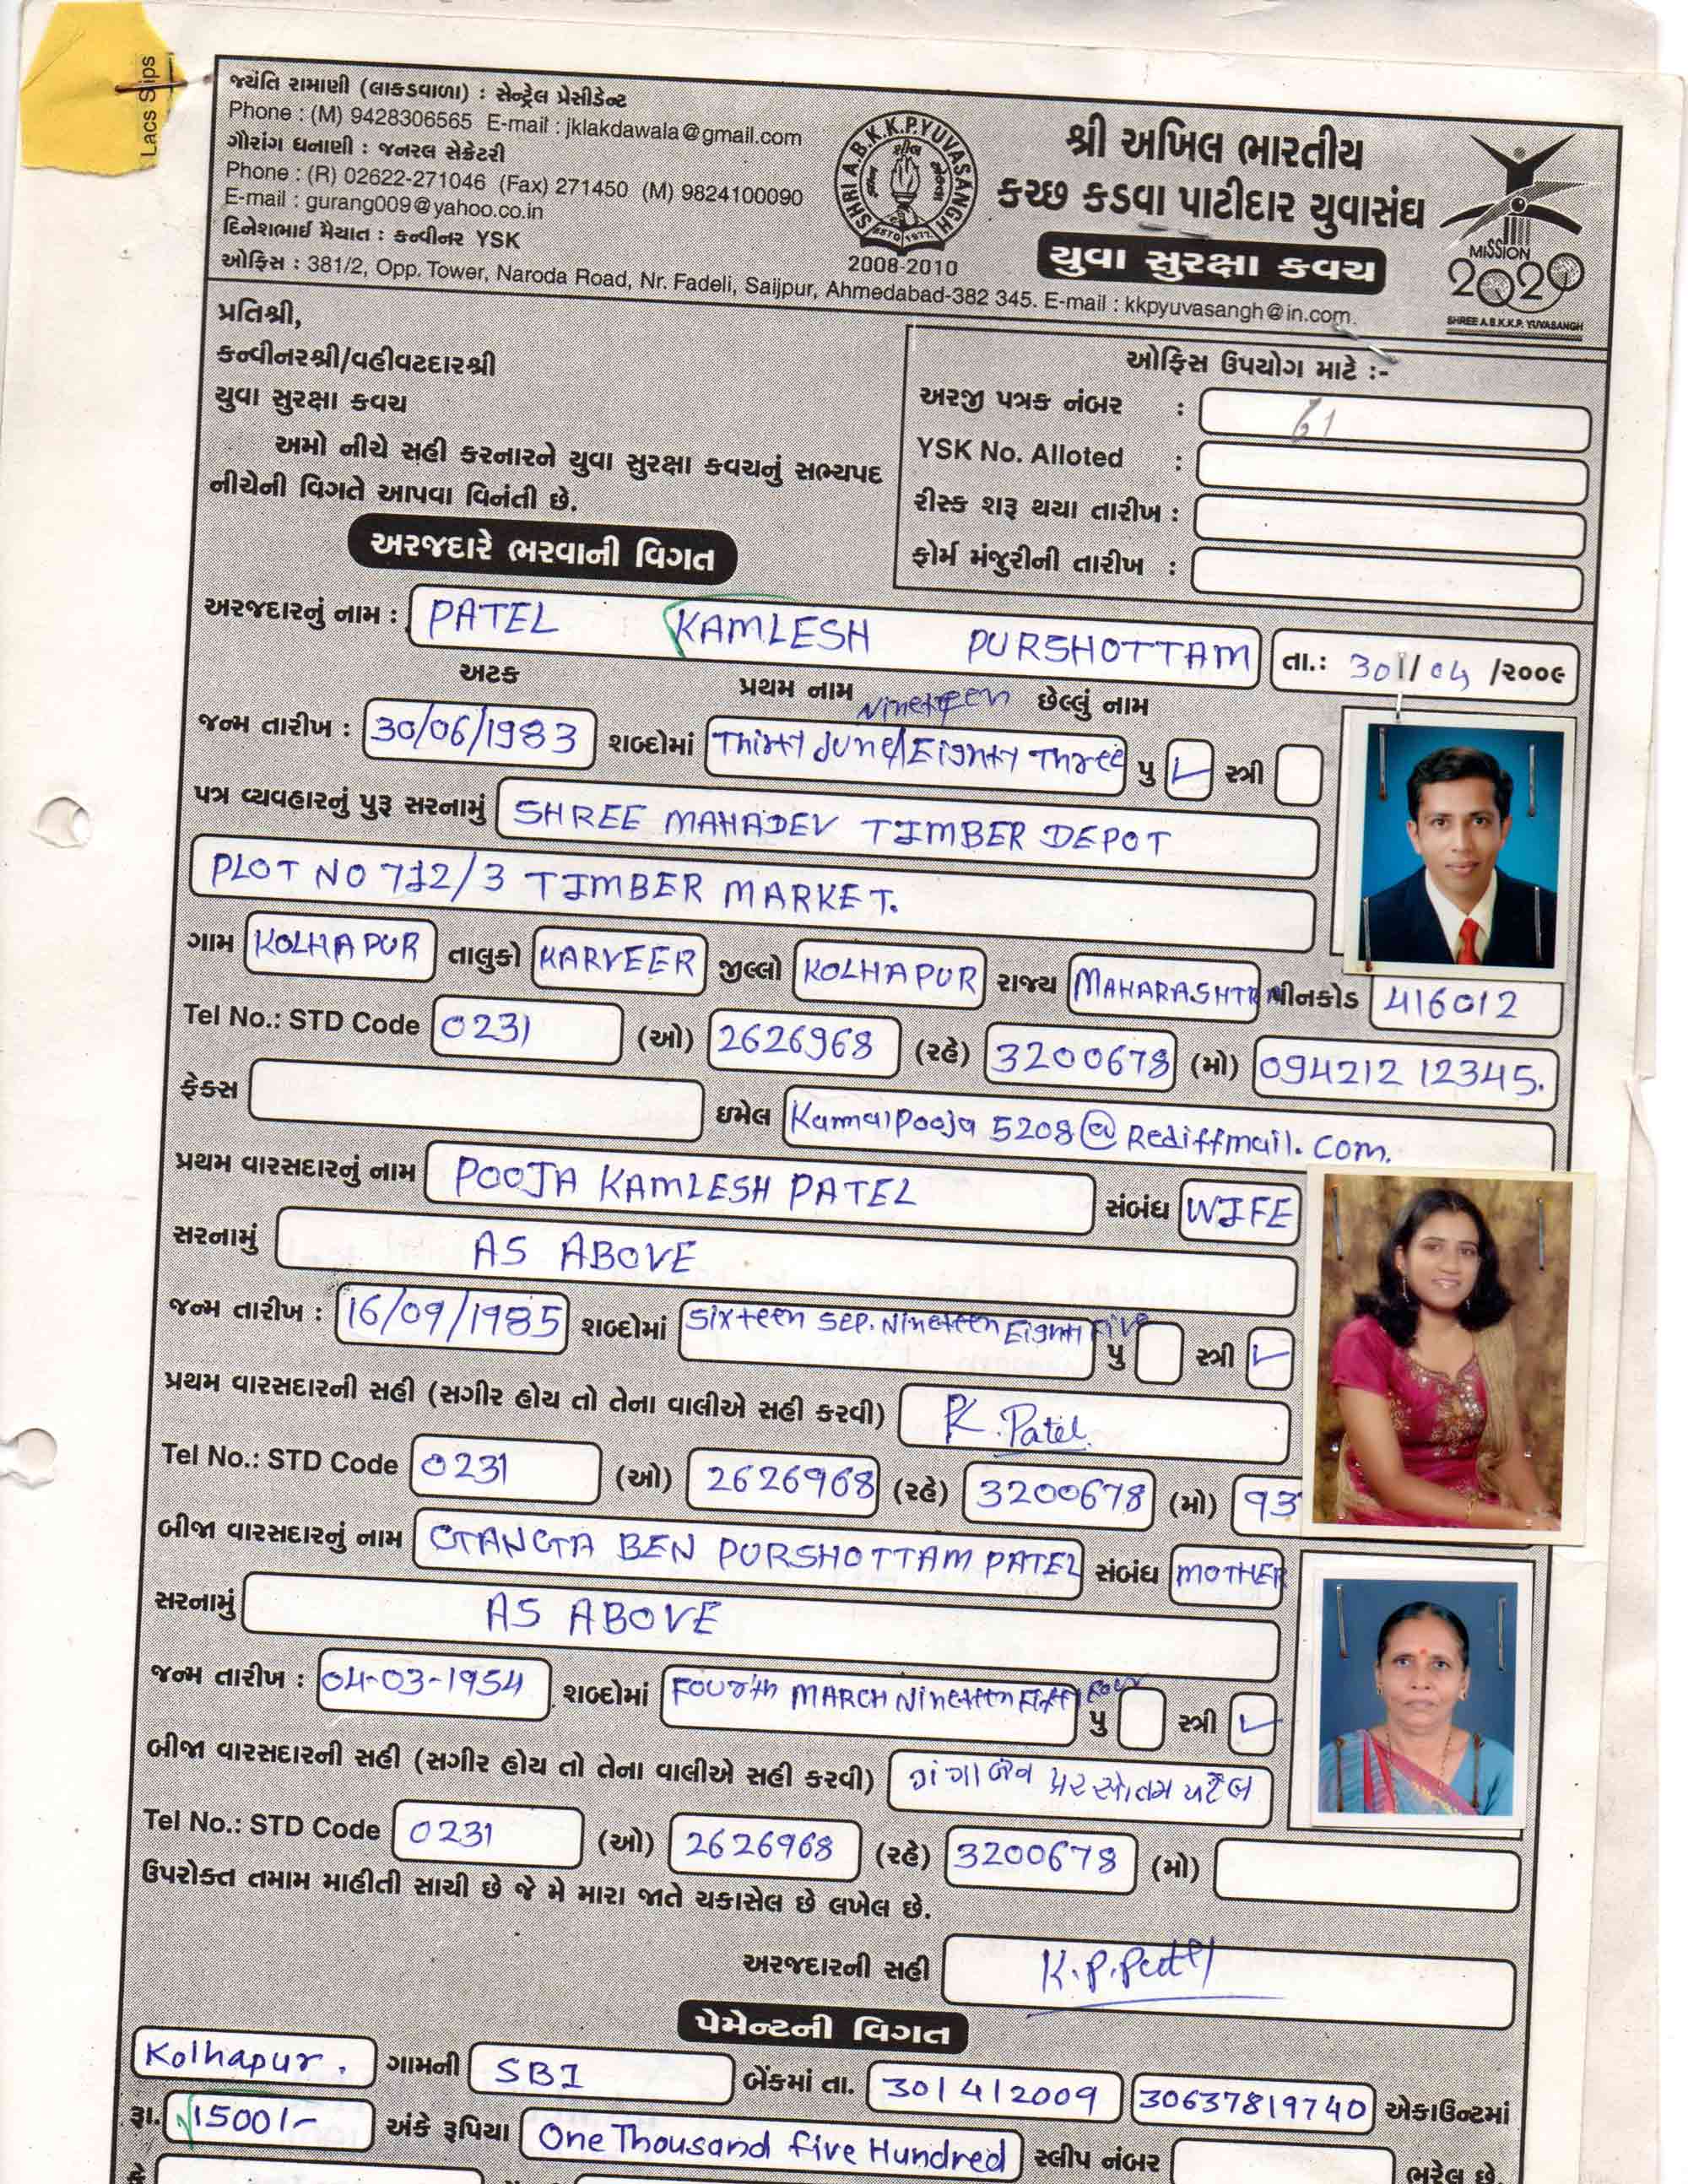 Lacs Slips
જ્યંતિ રામાણી (લાકડવાળા) : સેન્ટ્રેલ પ્રેસીડેન્ટ
Phone : (M) 9428306565 E-mail : jklakdawala@gmail.com
ગૌરાંગ ધનાણી : જનરલ સેક્રેટરી
Phone : (R) 02622-271046 (Fax) 271450 (M) 9824100090
E-mail : gurang009@yahoo.co.in
દિનેશભાઈ મૈયાત : કન્વીનર YSK
ઓફિસ : 381/2, Opp. Tower, Naroda Road, Nr. Fadeli, Saijpur, Ahmedabad-382 345. E-mail : kkpyuvasangh@in.com.
SHRI A.B.K.K.P.YUVASANGH
ESTD 1977
2008-2010
શ્રી અખિલ ભારતીય
કચ્છ કડવા પાટીદાર યુવાસંઘ
યુવા સુરક્ષા કવચ
MISSION
2020
SHREE A.B.K.K.P. YUVASANGH
પ્રતિશ્રી,
કન્વીનરશ્રી/વહીવટદારશ્રી
યુવા સુરક્ષા કવચ
અમો નીચે સહી કરનારને યુવા સુરક્ષા કવચનું સભ્યપદ
નીચેની વિગતે આપવા વિનંતી છે.
ઓફિસ ઉપયોગ માટે :-
અરજી પત્રક નંબર : 61
YSK No. Alloted :
રીસ્ક શરૂ થયા તારીખ :
ફોર્મ મંજુરીની તારીખ :
અરજદારે ભરવાની વિગત
અરજદારનું નામ : PATEL KAMLESH PURSHOTTAM તા.: 30/04/૨૦૦૯
અટક પ્રથમ નામ છેલ્લું નામ
જન્મ તારીખ : 30/06/1983 શબ્દોમાં Thirty June/Nineteen Eighty Three પુ ✓ સ્ત્રી
પત્ર વ્યવહારનું પુરૂ સરનામું SHREE MAHADEV TIMBER DEPOT
PLOT NO 712/3 TIMBER MARKET.
ગામ KOLHAPUR તાલુકો KARVEER જીલ્લો KOLHAPUR રાજ્ય MAHARASHTRA પીનકોડ 416012
Tel No.: STD Code 0231 (ઓ) 2626968 (રહે) 3200678 (મો) 094212 12345.
ફેક્સ ઇમેલ Kamalpooja 5208@Rediffmail.Com.
પ્રથમ વારસદારનું નામ POOJA KAMLESH PATEL સંબંધ WIFE
સરનામું AS ABOVE
જન્મ તારીખ : 16/09/1985 શબ્દોમાં Sixteen Sep. Nineteen Eighti Five પુ સ્ત્રી ✓
પ્રથમ વારસદારની સહી (સગીર હોય તો તેના વાલીએ સહી કરવી) P.K. Patel
Tel No.: STD Code 0231 (ઓ) 2626968 (રહે) 3200678 (મો) 93
બીજા વારસદારનું નામ GANGA BEN PURSHOTTAM PATEL સંબંધ MOTHER
સરનામું AS ABOVE
જન્મ તારીખ : 04-03-1954 શબ્દોમાં Fourth MARCH Nineteen Fifty Four પુ સ્ત્રી ✓
બીજા વારસદારની સહી (સગીર હોય તો તેના વાલીએ સહી કરવી) ગંગાબેન પરસોતમ પટેલ
Tel No.: STD Code 0231 (ઓ) 2626968 (રહે) 3200678 (મો)
ઉપરોક્ત તમામ માહીતી સાચી છે જે મે મારા જાતે ચકાસેલ છે લખેલ છે.
અરજદારની સહી K.P.Patel
પેમેન્ટની વિગત
Kolhapur. ગામની SBI બેંકમાં તા. 30/4/2009 30637819740 એકાઉન્ટમાં
રૂા. 1500/- અંકે રૂપિયા One Thousand five Hundred સ્લીપ નંબર ભરેલ છે.